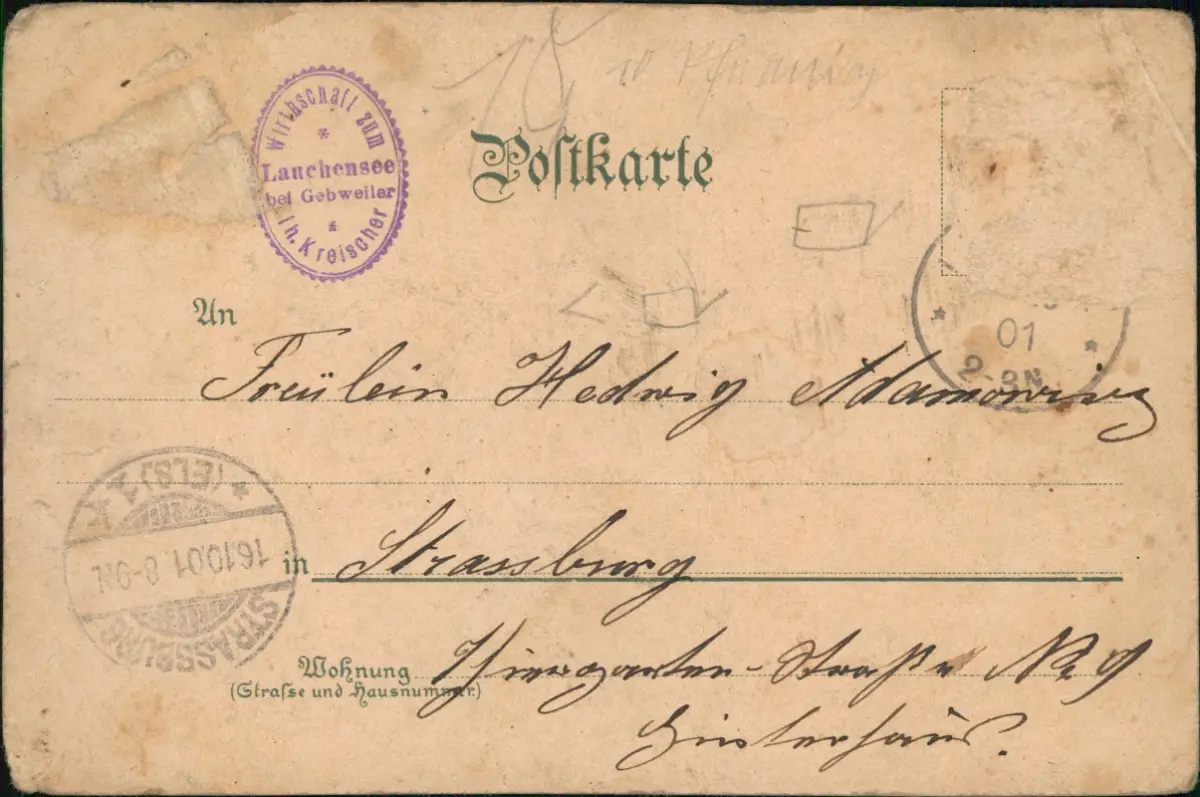 Wirthschaft zum
Lauchensee
bei Gebweiler
Th. Kreischer
Postkarte
An
Fräulein Hedwig Adamowicz
01
2-3N
STRASSBURG
16.10.01. 8-9N.
* (ELS.) 1 K
in Strassburg
Wohnung
(Strafse und Hausnummer.)
Thiergarten-Straße No 9
Hinterhaus.